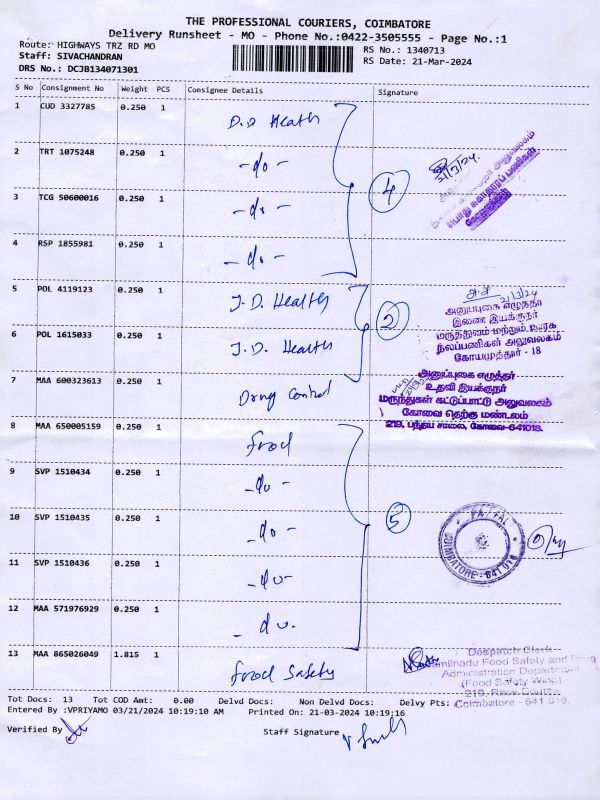 THE PROFESSIONAL COURIERS, COIMBATORE
Delivery Runsheet - MO - Phone No.:0422-3505555 - Page No.:1
Route: HIGHWAYS TRZ RD MO RS No.: 1340713
Staff: SIVACHANDRAN RS Date: 21-Mar-2024
DRS No.: DCJB134071301
S No Consignment No Weight PCS Consignee Details Signature
1 CUD 3327785 0.250 1 D.D Health
2 TRT 1075248 0.250 1 -do-
21/3/24
3 TCG 50600016 0.250 1 -do-
4
4 RSP 1855981 0.250 1 -do-
5 POL 4119123 0.250 1 J.D. Health
21/3/24
அனுப்புகை எழுத்தர்
இணை இயக்குநர்
2
மருத்துவம் மற்றும் ஊரக
6 POL 1615033 0.250 1 J.D. Health
நலப்பணிகள் அலுவலகம்
கோயமுத்தூர் - 18
அனுப்புகை எழுத்தர்
7 MAA 600323613 0.250 1 Drug Control
உதவி இயக்குநர்
மருந்துகள் கட்டுப்பாட்டு அலுவலகம்
கோவை தெற்கு மண்டலம்
219, பந்தய சாலை, கோவை-641018.
8 MAA 650005159 0.250 1 food
9 SVP 1510434 0.250 1 -do-
5
10 SVP 1510435 0.250 1 -do-
COIMBATORE - 641 018
11 SVP 1510436 0.250 1 -do-
12 MAA 571976929 0.250 1 -do.
13 MAA 865026049 1.815 1 food Safety
Despatch Clerk
Tamilnadu Food Safety and Drug
Administration Department
(Food Safety Wing)
219, Race Course
Coimbatore - 641 018.
Tot Docs: 13 Tot COD Amt: 0.00 Delvd Docs: Non Delvd Docs: Delvy Pts:
Entered By :VPRIYAMO 03/21/2024 10:19:10 AM Printed On: 21-03-2024 10:19:16
Verified By Staff Signature